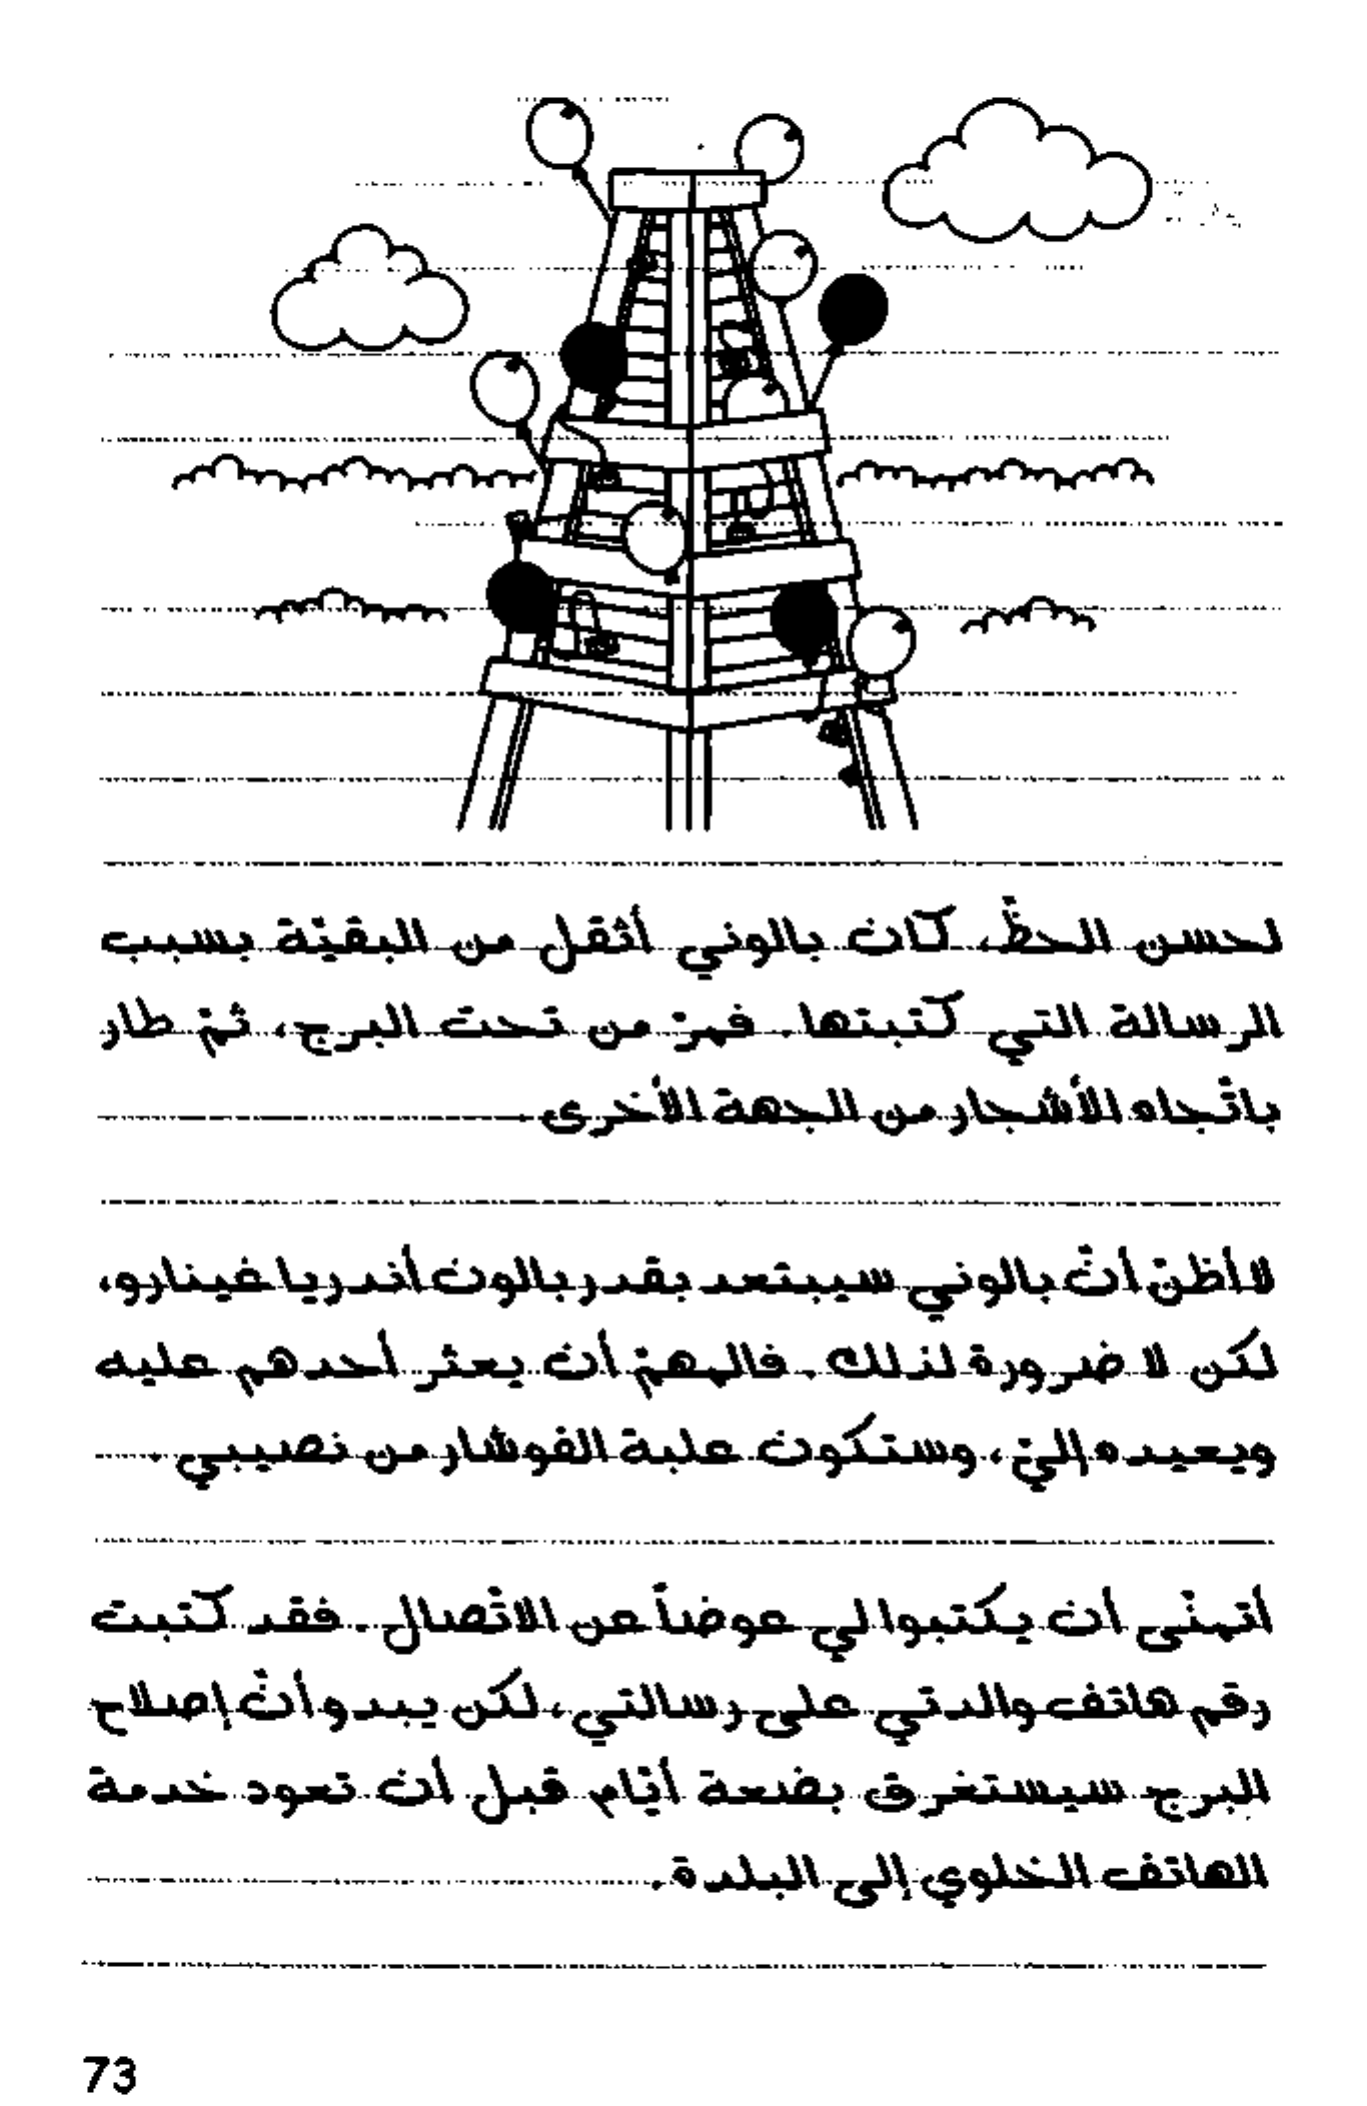 لحسن الحظّ، كان بالوني أثقل من البقيّة بسبب
الرسالة التي كتبتها. فمرّ من تحت البرج، ثمّ طار
باتّجاه الأشجار من الجهة الأخرى.
لا أظنّ أنّ بالوني سيبتعد بقدر بالون أندريا فينارو،
لكن لا ضرورة لذلك. فالمهمّ أن يعثر أحدهم عليه
ويعيده إليّ، وستكون علبة الفوشار من نصيبي.
أتمنّى أن يكتبوا لي عوضاً عن الاتّصال. فقد كتبت
رقم هاتف والدتي على رسالتي، لكن يبدو أنّ إصلاح
البرج سيستغرق بضعة أيّام قبل أن تعود خدمة
الهاتف الخلوي إلى البلدة.
73